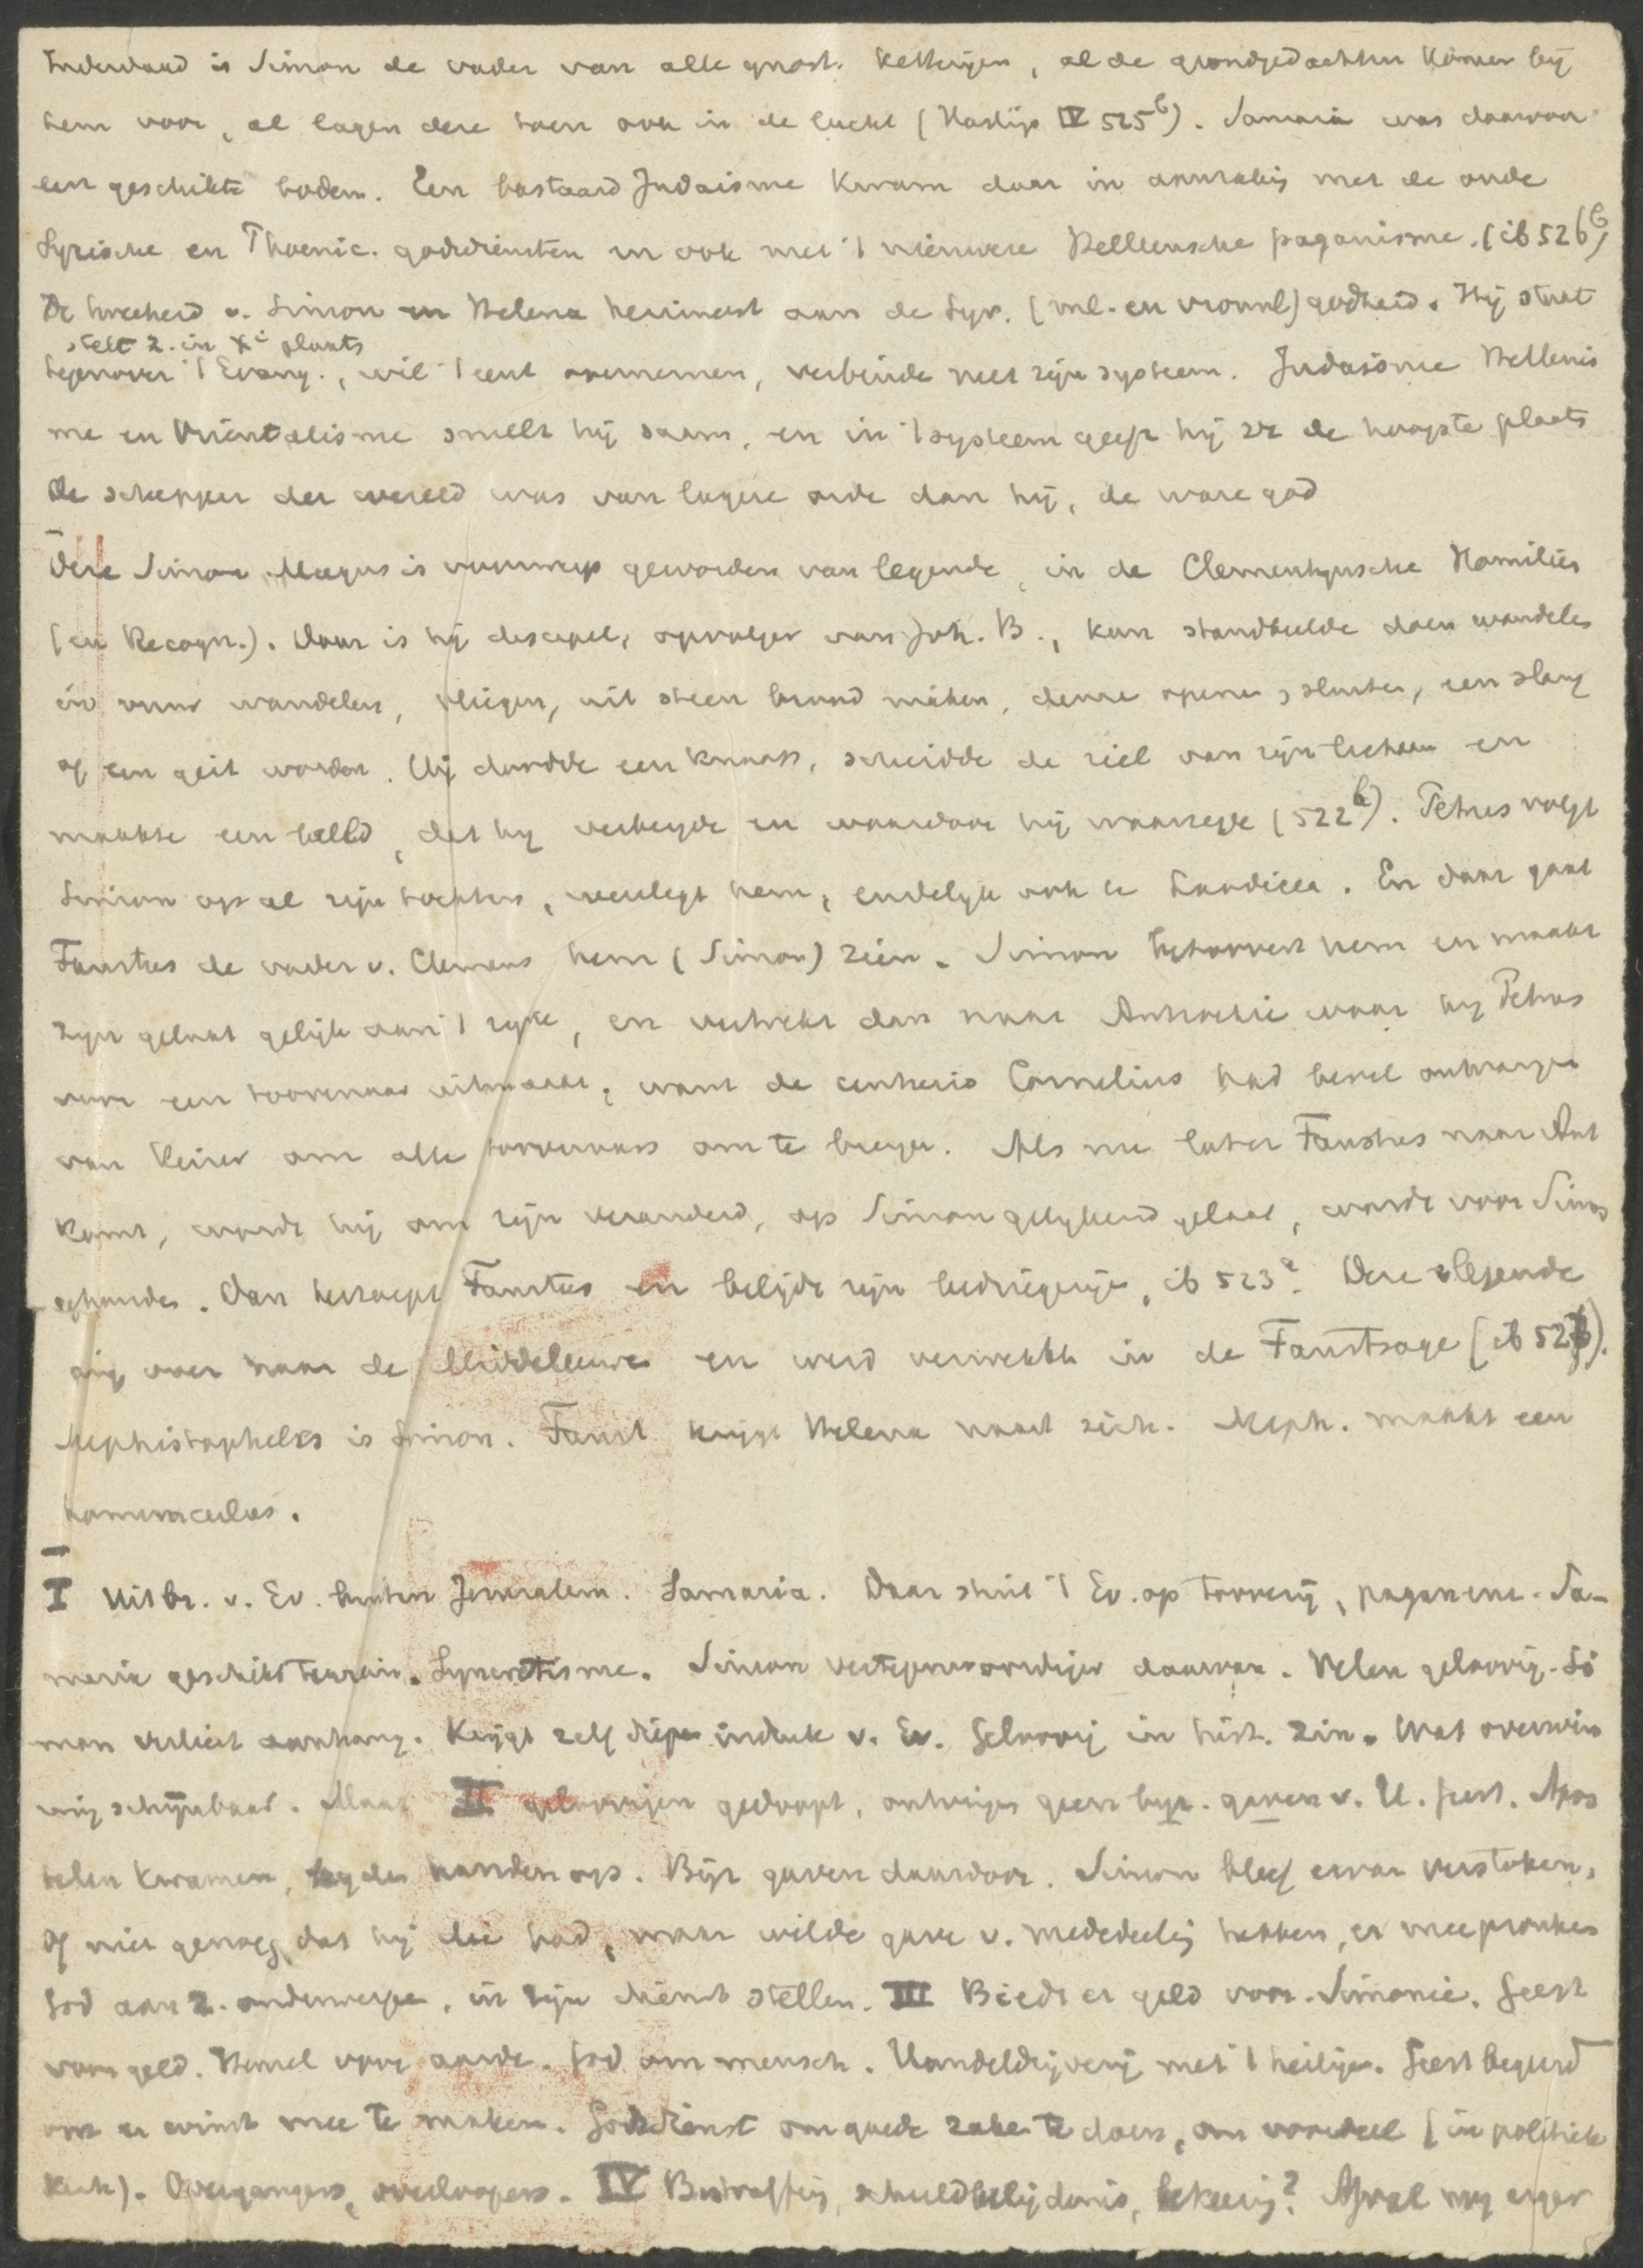 Inderdaad is Simon de vader van alle gnost. ketterijen, al de grondgedachten komen bij
hem voor, al lagen deze toen ook in de lucht (Hastings IV 525b). Samaria was daarvoor
een geschikte bodem. Een bastaard Judaisme kwam daar in aanraking met de oude
Syrische en Phoenic. godsdiensten en ook met 't nieuwere Helleensche paganisme. (ib 526b)
De tweeheid v. Simon en Helena herinnert aan de Syr. (ml. en vrouwl) godheid. Hij staat
stelt z. in Xi plaats
tegenover 't Evang., wil 't eerst overnemen, verbinde met zijn systeem. Judaisme Hellenis
me en Orientalisme smelt hij saam, en in 't systeem geeft hij zz de hoogste plaats
De schepper der wereld was van lagere orde dan hij, de ware god
Deze Simon Magus is voorwerp geworden van legende, in de Clementynsche Homilies
(en Recogn.). Daar is hij discipel, opvolger van Joh. B., kan standbeelde doen wandelen
in vuur wandelen, vliegen, uit steen brood maken, deure openen, sluiten, een slang
of een geit worden. Hij doodde een knaap, scheidde de ziel van zijn lichaam en
maakte een beeld, dat hij verbergde en waardoor hij waarzegde (522b). Petrus volgt
Simon op al zijn tochten, weerlegt hem, eindelyk ook te Laodicea. En daar gaat
Faustus de vader v. Clemens hem (Simon) zien. Simon betoovert hem en maakt
zijn gelaat gelijk aan 't zijne, en vertrekt dan naar Antiochie waar hij Petrus
voor een toovenaar uitmaakt, want de centurio Cornelius had bevel ontvangen
van Keizer om alle toovenaars om te brengen. Als nu later Faustus naar Ant
komt, wordt hij om zijn veranderd, op Simon gelijkend gelaat, wordt voor Simon
gehouden. Dan herroept Faustus en belijdt zijn bedriegerije, ib 523a. Deze legende
ging over naar de Middeleeuwen en werd verwerkt in de Faustsage (ib 527b).
Mephistopheles is Simon. Faust krijgt Helena naast zich. Meph. maakt een
homunculus.
I Uitbr. v. Ev. buiten Jeruzalem. Samaria. Daar stuit 't Ev. op toverij, paganisme. Sa-
maria geschikt terrein. Syncretisme. Simon vertegenwoordiger daarvan. Velen geloovig. Si
mon verliest aanhang. Krijgt zelf diepe indruk v. Ev. Geloovig in hist. zin. Wat overwin
ning schijnbaar. Maar II geloovigen gedoopt, ontvingen geen byz. gaven v. H. Geest. Apos
telen kwamen, legden handen op. Byz gaven daardoor. Simon bleef ervan verstoken,
Of niet genoeg dat hij die had, maar wilde gave v. mededeeling hebben, er mee pronken
God aan z. onderwerpen, in zijn dienst stellen. III Biedt er geld voor. Simonie. Geest
voor geld. Hemel voor aarde. God om mensch. Handeldrijverij met 't heilige. Geest begeerd
om er winst mee te maken. Godsdienst om goede zaken te doen, om voordeel (in politiek
kerk). Overgangers, overloopers. IV Bestraffing, schuldbelijdenis, bekeering? Afval nog erger